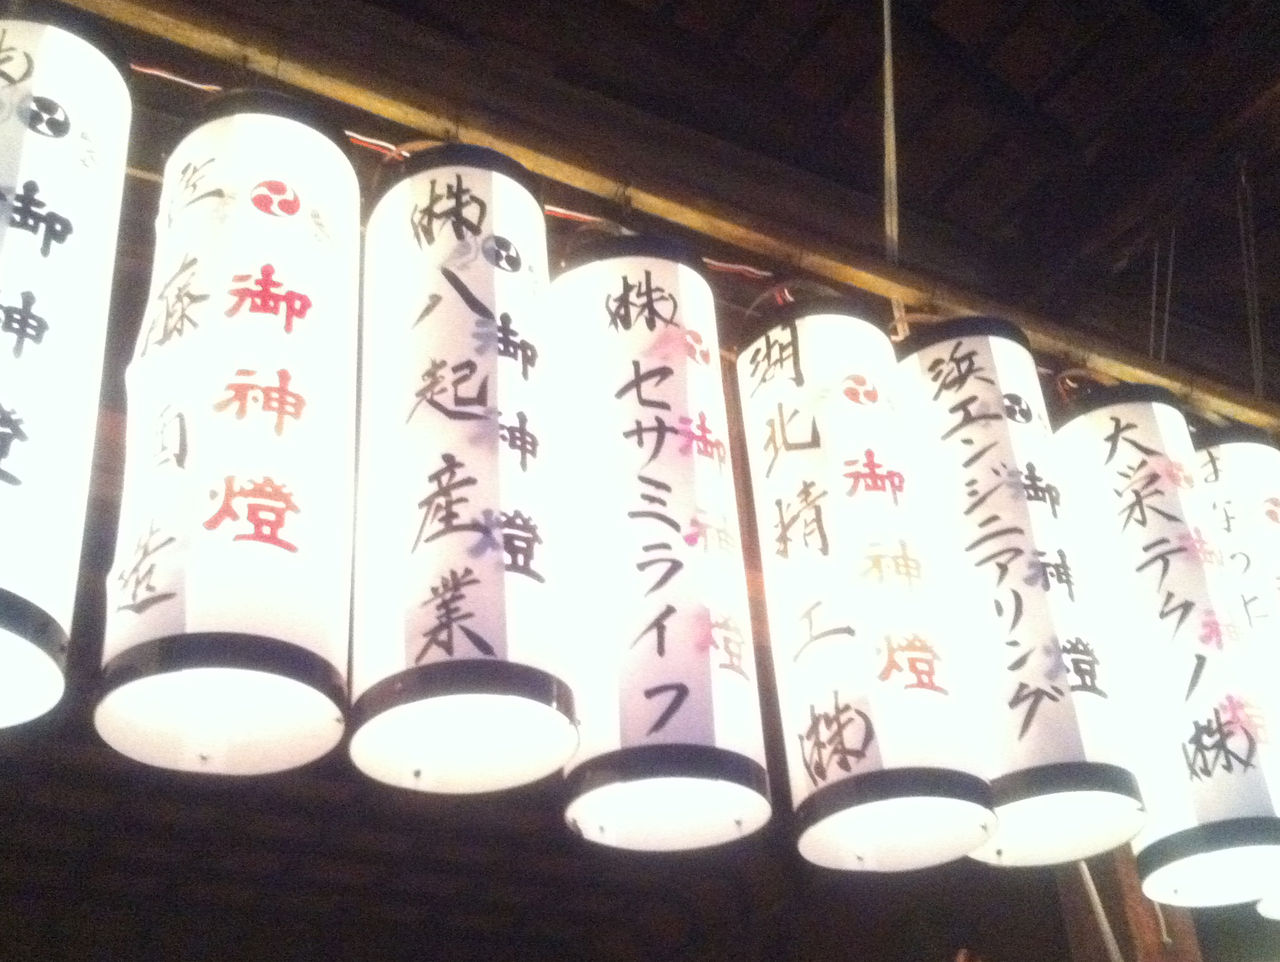 御神燈
御神燈
㈱八起産業
御神燈
㈱セサミライフ
御神燈
湖北精工㈱
御神燈
浜エンジニアリング
御神燈
大栄テクノ㈱
御神燈
まなつ